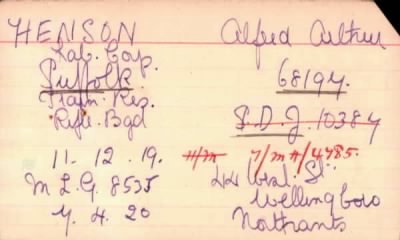 HENSON Alfred Arthur
Lab. Corp.
Suffolk 68194.
Train. Res.
Rifle Bgd S.D.J. 10384
11. 12. 19. H/M 7/M H/4485.
M L G. 8535 St.
Wellingboro
4. 4. 20 Northants